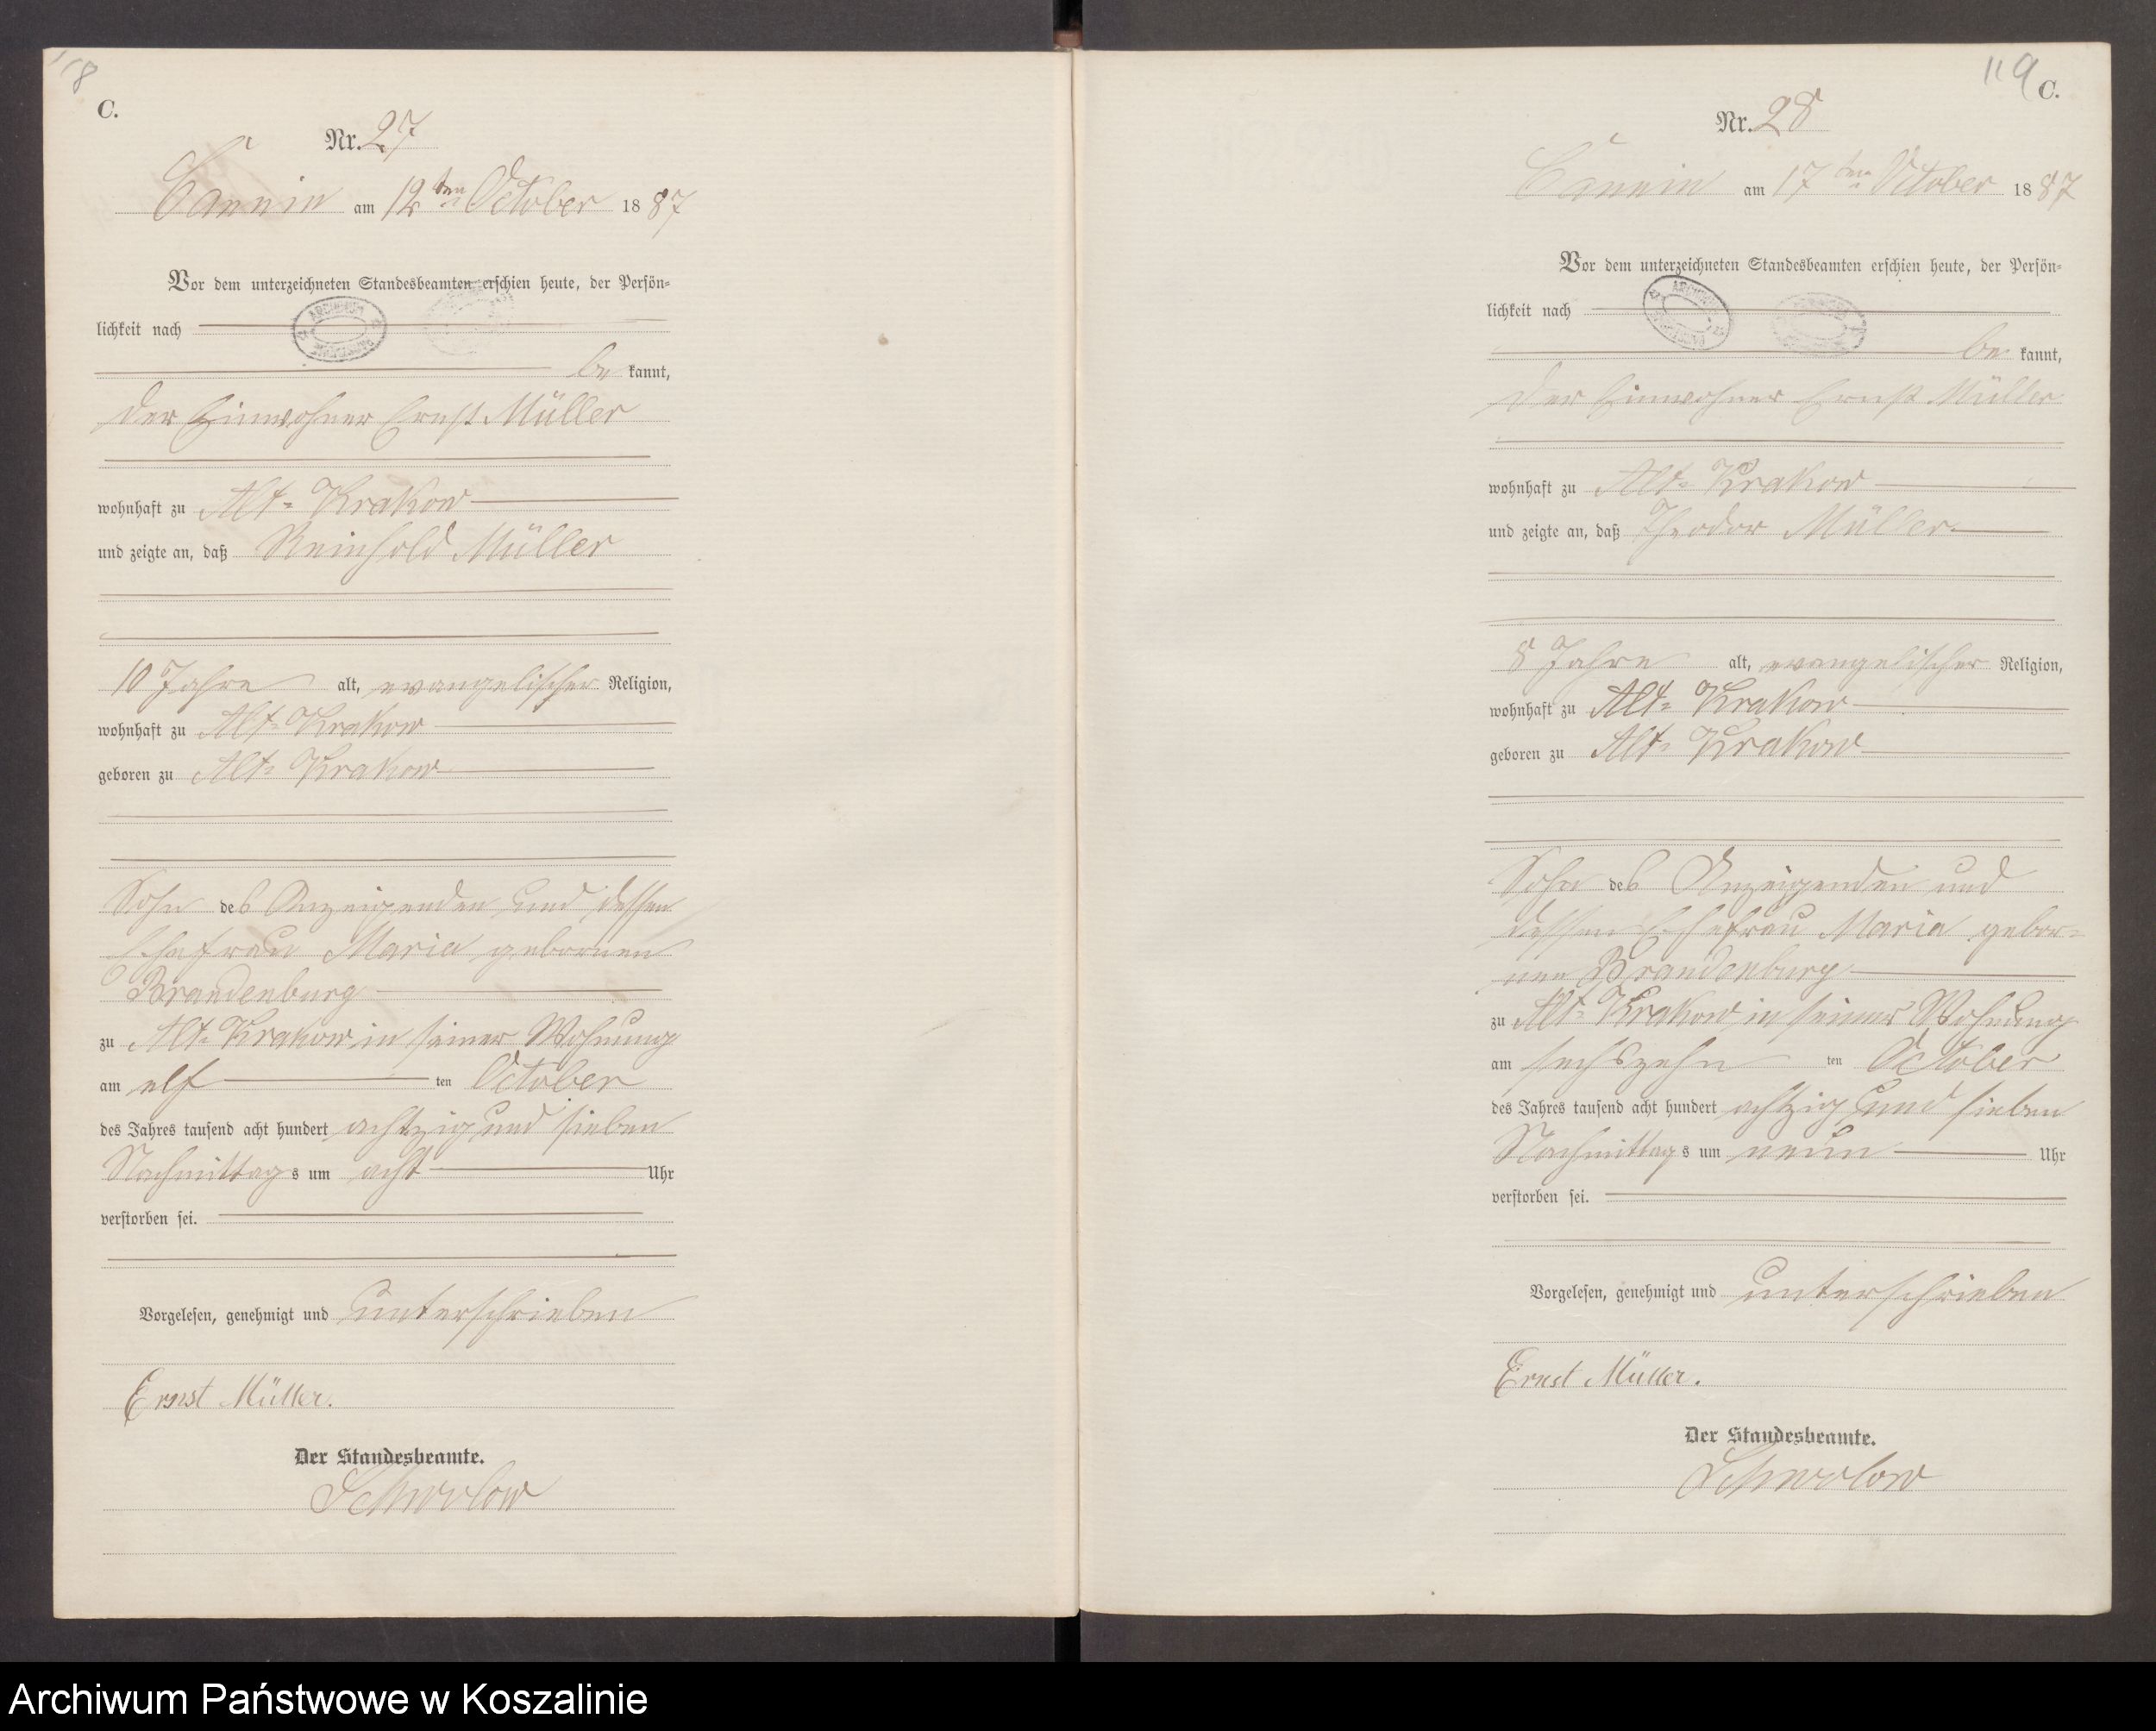 118
C.
Nr. 27
Cannin am 12ten October 1887
Vor dem unterzeichneten Standesbeamten erschien heute, der Persön-
lichkeit nach
be kannt,
der Einwohner Ernst Müller
wohnhaft zu Alt-Krakow
und zeigte an, daß Reinhold Müller
10 Jahre alt, evangelischer Religion,
wohnhaft zu Alt-Krakow
geboren zu Alt-Krakow
Sohn des Anzeigenden und dessen
Ehefrau Maria gebornen
Brandenburg
zu Alt-Krakow in seiner Wohnung
am elf ten October
des Jahres tausend acht hundert achtzig und sieben
Nachmittags um acht Uhr
verstorben sei.
Vorgelesen, genehmigt und unterschrieben
Ernst Müller.
Der Standesbeamte.
119
C.
Nr. 28
Cannin am 17ten October 1887
Vor dem unterzeichneten Standesbeamten erschien heute, der Persön-
lichkeit nach
be kannt,
der Einwohner Ernst Müller
wohnhaft zu Alt-Krakow
und zeigte an, daß Theodor Müller
8 Jahre alt, evangelischer Religion,
wohnhaft zu Alt-Krakow
geboren zu Alt-Krakow
Sohn des Anzeigenden und
dessen Ehefrau Maria gebor-
nen Brandenburg
zu Alt-Krakow in seiner Wohnung
am sechszehn ten October
des Jahres tausend acht hundert achtzig und sieben
Nachmittags um neun Uhr
verstorben sei.
Vorgelesen, genehmigt und unterschrieben
Ernst Müller.
Der Standesbeamte.
Archiwum Państwowe w Koszalinie